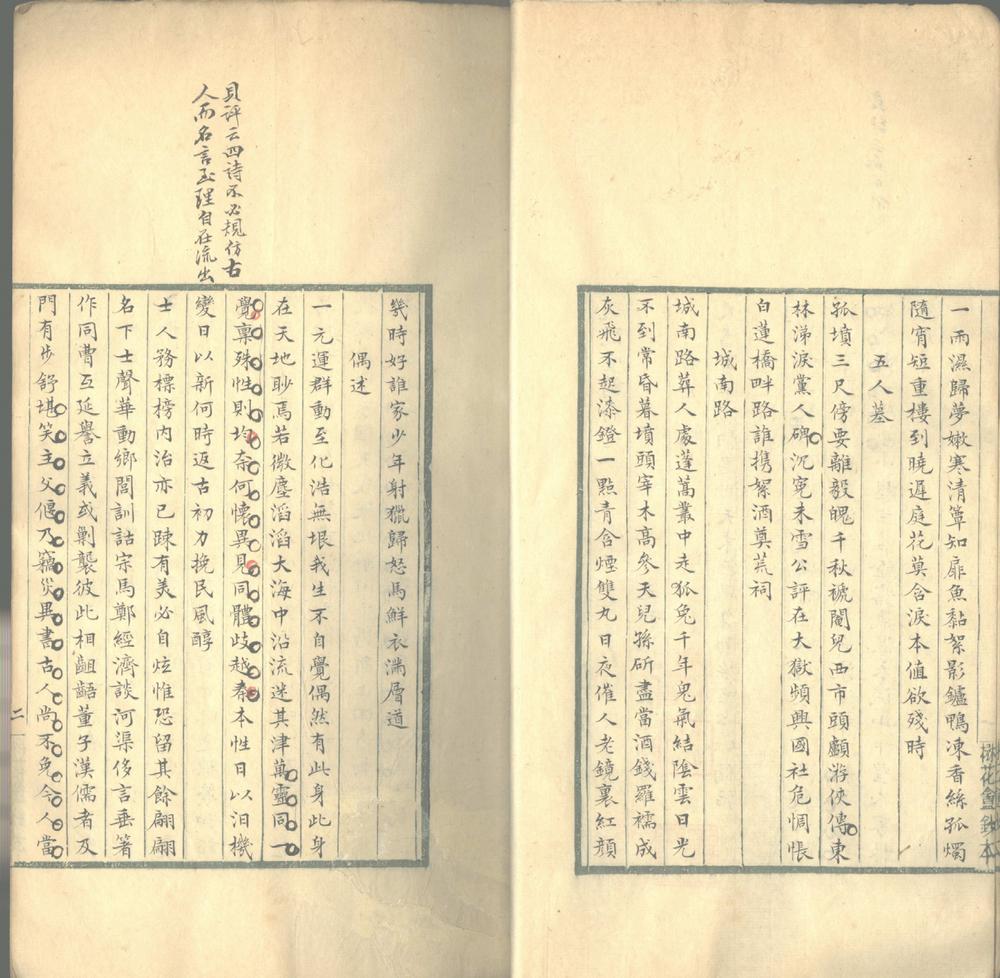 一雨濕歸夢嫩寒清簟知扉魚黏絮影鑪鴨凍香絲孤燭
隨宵短重樓到曉遲庭花莫含淚本值欲殘時
五人墓
孤墳三尺傍要離毅魄千秋褫閹兒西市頭顱游俠傳東
林涕淚黨人碑沉冤未雪公評在大獄頻興國社危惆悵
白蓮橋畔路誰携絮酒奠荒祠
城南路
城南路葬人處蓬蒿叢中走狐兔千年鬼氣結陰雲日光
不到常昏暮墳頭宰木高參天兒孫斫盡當酒錢羅襦成
灰飛不起漆鐙一點青含煙雙丸日夜催人老鏡裏紅顏
鈔本
幾時好誰家少年射獵歸怒馬鮮衣滿層道
偶述
一元運群動至化浩無垠我生不自覺偶然有此身此身
在天地眇焉若微塵滔滔大海中沿流迷其津萬靈同一
覺稟殊性則均奈何懷異見同體歧越秦本性日以汨機
變日以新何時返古初力挽民風醇
士人務標榜內治亦已踈有美必自炫惟恐留其餘翩翩
名下士聲華動鄉閭訓詁宗馬鄭經濟談河渠侈言垂著
作同曹互延譽立義或剿襲彼此相齟齬董子漢儒者及
門有步舒堪笑主父偃乃竊災異書古人尚不免今人當
二
貝評云四詩不必規仿古
人而名言至理自在流出